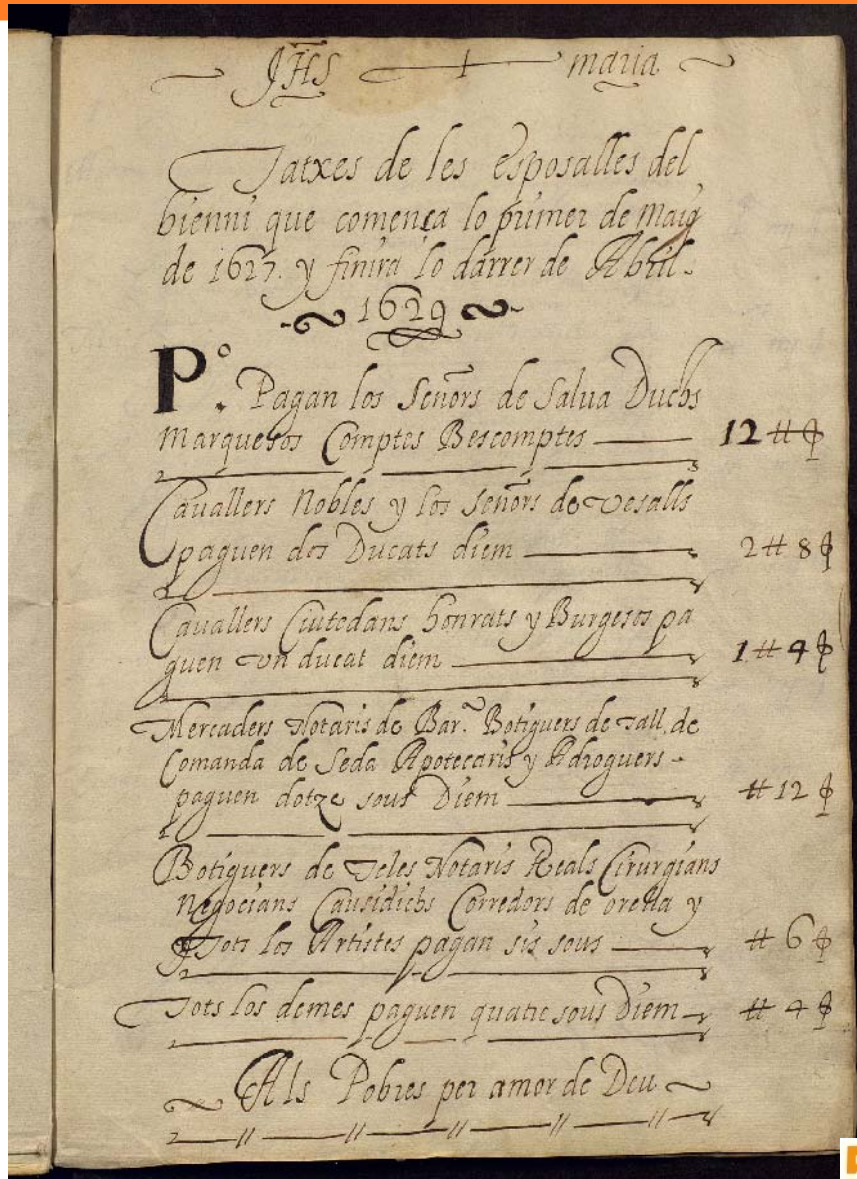 JHS + maria
Tatxes de les esposalles del
bienni que comença lo primer de Maig
de 1627. y finira lo darrer de Abril.
1629
Pº. Pagan los Señors de Salua Duchs
Marquesos Comptes Bescomptes 12 ⧺ ꞩ
Cauallers Nobles y los Señors de Vesalls
paguen dos Ducats diem 2 ⧺ 8 ꞩ
Cauallers Ciutedans honrats y Burgesos pa
guen vn ducat diem 1 ⧺ 4 ꞩ
Mercaders Notaris de Bar.ª Botiguers de tall, de
Comanda de Seda Apotecaris y Adroguers
paguen dotze sous Diem ⧺ 12 ꞩ
Botiguers de Teles Notaris Reals Cirurgians
Negocians Causidichs Corredors de orella y
Tots los Artistes pagan sis sous ⧺ 6 ꞩ
Tots los demes paguen quatre sous Diem ⧺ 4 ꞩ
Als Pobres per amor de Deu